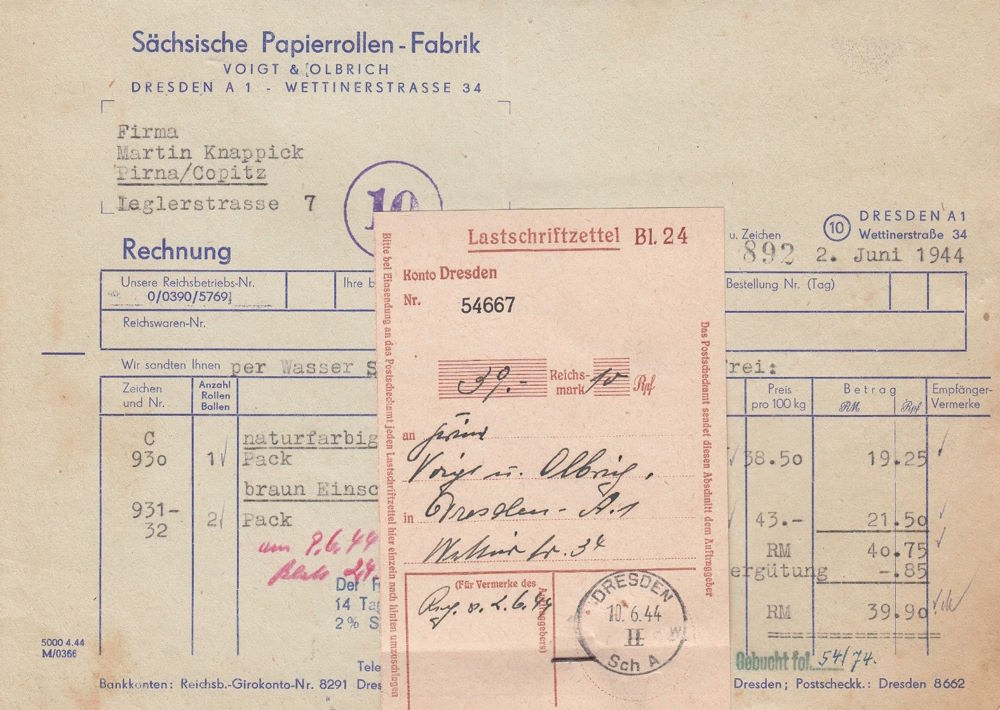 Sächsische Papierrollen-Fabrik
VOIGT & OLBRICH
DRESDEN A 1 - WETTINERSTRASSE 34
Firma
Martin Knappick
Pirna/Copitz
Leglerstrasse 7
10
Rechnung
u. Zeichen
10 DRESDEN A1
Wettinerstraße 34
892 2. Juni 1944
Unsere Reichsbetriebs-Nr.
0/0390/5769
Ihre b
Bestellung Nr. (Tag)
Reichswaren-Nr.
Wir sandten Ihnen per Wasser S
rei:
Zeichen und Nr.
Anzahl Rollen Ballen
Preis pro 100 kg
Betrag
RM Rpf
Empfänger-Vermerke
C naturfarbig
930 1 Pack 38.50 19.25
braun Einsc
931-32 2 Pack 43.- 21.50
RM 40.75
ergütung -.85
RM 39.90
am 9.6.44
Blatt 24
Der R
14 Ta
2% S
5000 4.44
M/0366
Tele
Bankkonten: Reichsb.-Girokonto-Nr. 8291 Dres
Dresden; Postscheckk.: Dresden 8662
Gebucht fol. 54/74.
Lastschriftzettel Bl. 24
Konto Dresden
Nr. 54667
39.- Reichsmark 10 Rpf
an Firma
Voigt u. Olbrich,
in Dresden-A.1
Wettiner Str. 34
(Für Vermerke des Auftraggebers)
Rng. v. 2.6.44
DRESDEN
10.6.44
II
Sch A
Bitte bei Einsendung an das Postscheckamt jeden Lastschriftzettel hier einzeln nach hinten umzuschlagen
Das Postscheckamt sendet diesen Abschnitt dem Auftraggeber